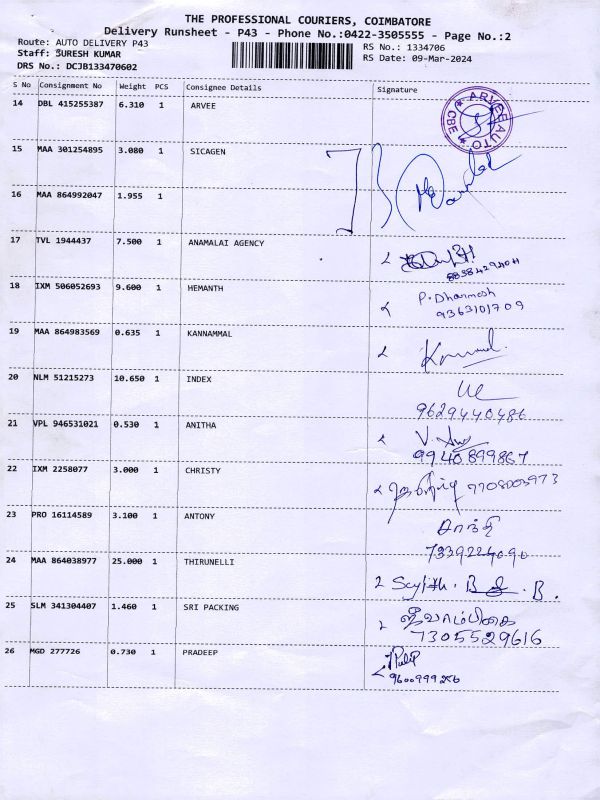 THE PROFESSIONAL COURIERS, COIMBATORE
Delivery Runsheet - P43 - Phone No.:0422-3505555 - Page No.:2
Route: AUTO DELIVERY P43
Staff: SURESH KUMAR
DRS No.: DCJB133470602
RS No.: 1334706
RS Date: 09-Mar-2024
S No Consignment No Weight PCS Consignee Details Signature
14 DBL 415255387 6.310 1 ARVEE
ARVEE AUTO CBE
15 MAA 301254895 3.080 1 SICAGEN
16 MAA 864992047 1.955 1
17 TVL 1944437 7.500 1 ANAMALAI AGENCY
18 IXM 506052693 9.600 1 HEMANTH P. Dharmesh
9363101709
19 MAA 864983569 0.635 1 KANNAMMAL
20 NLM 51215273 10.650 1 INDEX
9629440486
21 VPL 946531021 0.530 1 ANITHA
9940899867
22 IXM 2258077 3.000 1 CHRISTY 7708005973
23 PRO 16114589 3.100 1 ANTONY சாந்தி
7339224090
24 MAA 864038977 25.000 1 THIRUNELLI
25 SLM 341304407 1.460 1 SRI PACKING ஜீவாம்பிகை
7305529616
26 MGD 277726 0.730 1 PRADEEP
9600999256